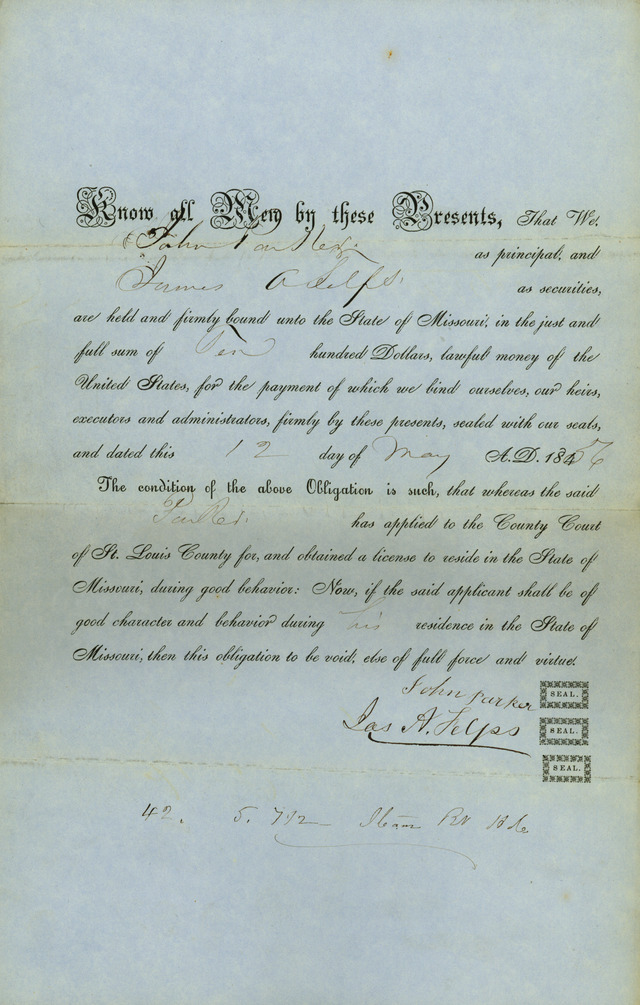 Know all Men by these Presents, That We.
John Parker as principal, and
James A Felps as securities,
are held and firmly bound unto the State of Missouri, in the just and
full sum of Ten hundred Dollars, lawful money of the
United States, for the payment of which we bind ourselves, our heirs,
executors and administrators, firmly by these presents, sealed with our seals,
and dated this 12 day of May A.D. 1856
The condition of the above Obligation is such, that whereas the said
Parker has applied to the County Court
of St. Louis County for, and obtained a license to reside in the State of
Missouri, during good behavior: Now, if the said applicant shall be of
good character and behavior during his residence in the State of
Missouri, then this obligation to be void, else of full force and virtue.
John Parker SEAL.
Jas A. Felps SEAL.
SEAL.
42. 5.